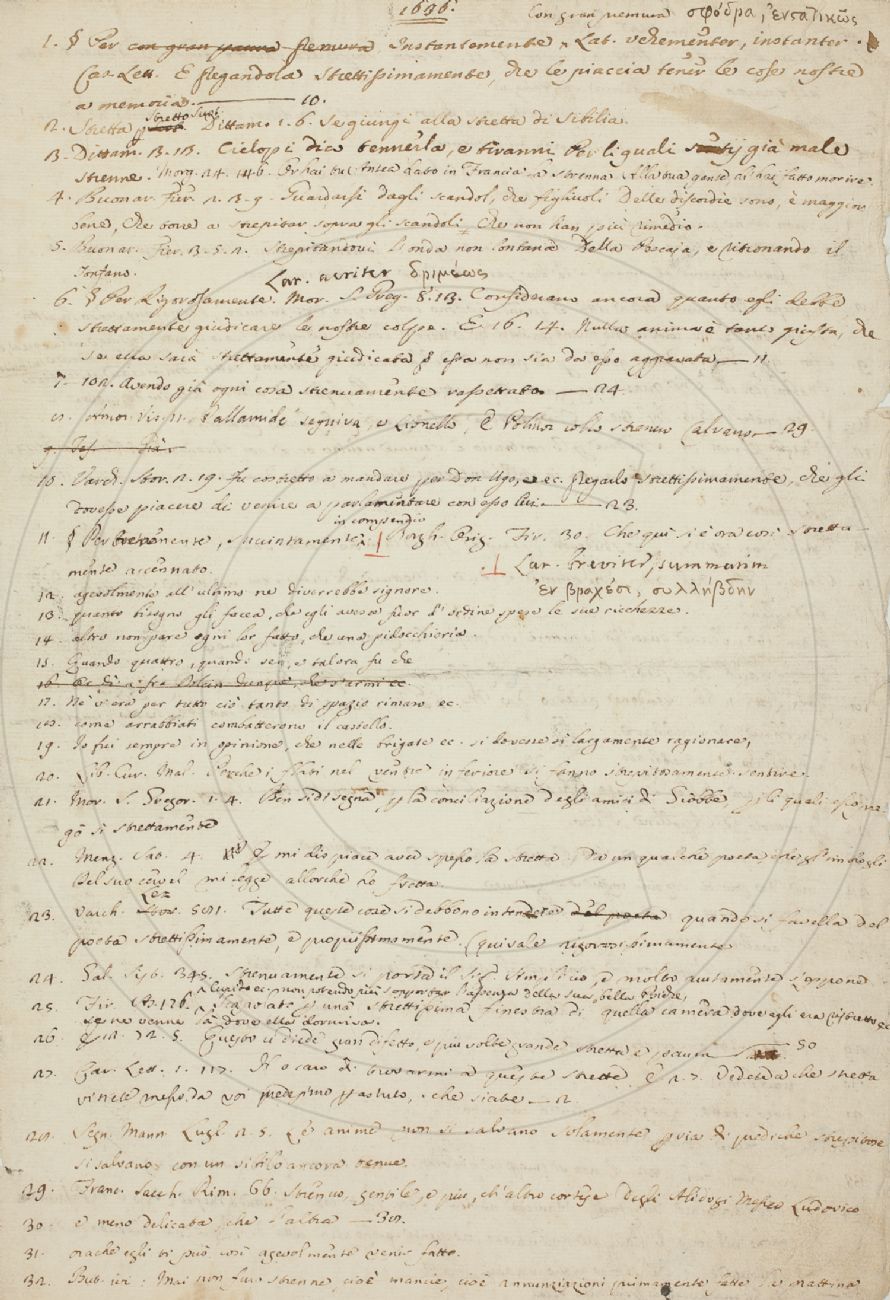 1696.
Con gran premura σφόδρα, ἐνστατικῶς
1. § Per con gran premura Instantemente, Lat. vehementer, instanter.
Car. Lett. E pregandola strettissimamente, che le piaccia tener le cose nostre
a memoria. 10.
2. Stretta Stretto Sust. Dittam. 1. 6. Se giungi alla stretta di Sibilia.
3. Dittam. 3. 13. Ciclopi dico tennerla, e tiranni Per li quali già male
strenne. Morg. 24. 146. alla tua gente, ch' hai fatto morire.
4. Buonar. Fier. 2. 3. 9. Guardarsi dagli scandol, che figliuoli Delle discordie sono, è maggior
bene, che corre a strepitar sopra gli scandoli Che non han più rimedio.
5. Buonar. Fier. 3. 5. 2. Strepitandovi l'onda non lontana Della Pescaja, e ritronando il
Tonfano.
Lat. acriter δριμέως
6. § Per Rigorosamente. Mor. S. Greg. 8. 13. Considerano ancora quanto egli debbe
strettamente giudicare le nostre colpe. E 16. 14. Nulla anima è tanto giusta, che
se ella sarà strettamente giudicata essa non sia da esso aggravata. 11.
7. 102. Avendo già ogni cosa strenuamente rassettato 24
Pallamidè seguiva, e Lionello, E Polinor collo strenuo Calvano 29.
10. Varch. Stor. 2. 19. Fu costretto a mandare per Don Ugo, e ec. pregarlo strettissimamente, che gli
dovesse piacere di venire a parlamentare con esso lui. 23.
in compendio
11. § Per brevemente, succintamente, Borgh. Orig. Fir. 30. Che qui si è ora così stretta-
mente accennato.
Lat. breviter, summatim
ἐν βραχέσι, συλλήβδην
12. agevolmente all' ultimo ne diverrebbe signore.
13. quanto bisogno gli facea, che egli avesse fuor d' ordine spese le sue ricchezze.
14. altro non pare ogni lor fatto, che una pidocchieria.
15. Quando quattro, quando sei, e talora fu che
16. Or dì a fra Dolcin dunque, che s'armi ec.
17. Nè v'era per tutto ciò tanto di spazio rimaso ec.
18. come arrabbiati combatterono il castello.
19. Io fui sempre in opinione, che nelle brigate ec. si dovesse sì largamente ragionare,
20. Lib. Cur. Mal. Perchè i flati nel ventre inferiore si fanno strepitosamente sentire.
21. Mor. S. Gregor. 1. 4. Ben si disegna la conciliazione degli amici di Giobbe, li quali
gò sì strettamente
22. Menz. Sat. 4. mi dispiace aver spesso la stretta Da un qualche poeta, che gl' imbrogli
Del suo cervel mi legge allorchè ho fretta.
23. Varch. Lez. 581. Tutte queste cose si debbono intendere quando si favella del
poeta strettissimamente, e propiissimamente. (qui vale rigorosissimamente
24. Gal. Sist. 345. Strenuamente si porta il Sig. Simplicio, e molto acutamente s'oppone
25. Fir. As. 126. Cupido ec. non potendo più sopportar l'assenza della sua bella Psiche,
una strettissima finestra di quella camera, dove egli era ristretto ec.
se ne venne là dove ella dormiva.
26. 72. 5. Questo ci diede gran difetto, e più volte grande stretta e paura 30
27. Car. Lett. 1. 117. Il caso di trovarmi a queste strette. E 2. 7. Vedete che stretta
vi siete messo da voi medesimo astuto, che siate 2.
28. Segn. Mann. Lugl. 2. 5. Le anime non si salvano solamente via di prediche strepitose
si salvano con un sibilo ancora tenue.
29. Franc. Sacch. Rim. 66. Strenuo, gentile, e più, ch' altro cortese Degli Alidogi Messer Ludovico
30. e meno delicata, che l'altra
31. orachè egli ti può così agevolmente venir fatto.
32. But. ivi: Mai non fur strenne cioè mancie, cioè annunziazioni primamente fatte la mattina